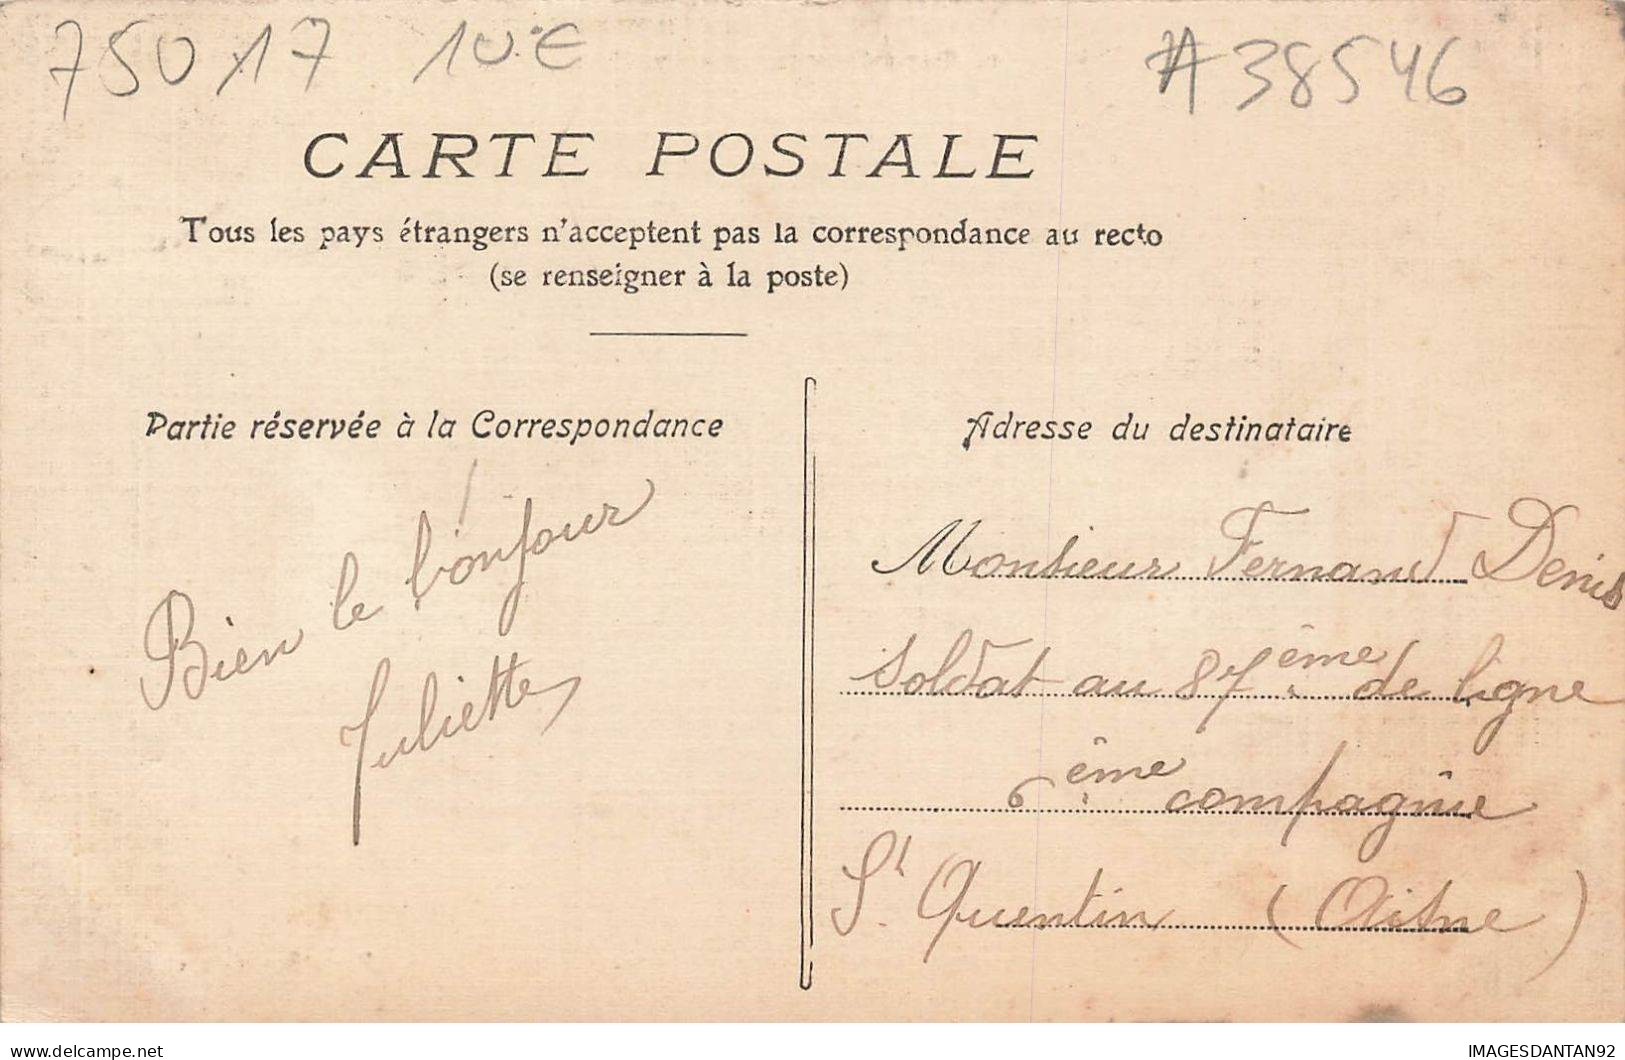 75017 10€ A38546
CARTE POSTALE
Tous les pays étrangers n'acceptent pas la correspondance au recto
(se renseigner à la poste)
Partie réservée à la Correspondance
Bien le bonjour
Juliette
Adresse du destinataire
Monsieur Fernand Denis
Soldat au 87ème de ligne
6ème compagnie
St Quentin (Aisne)
delcampe.net
IMAGESDANTAN92